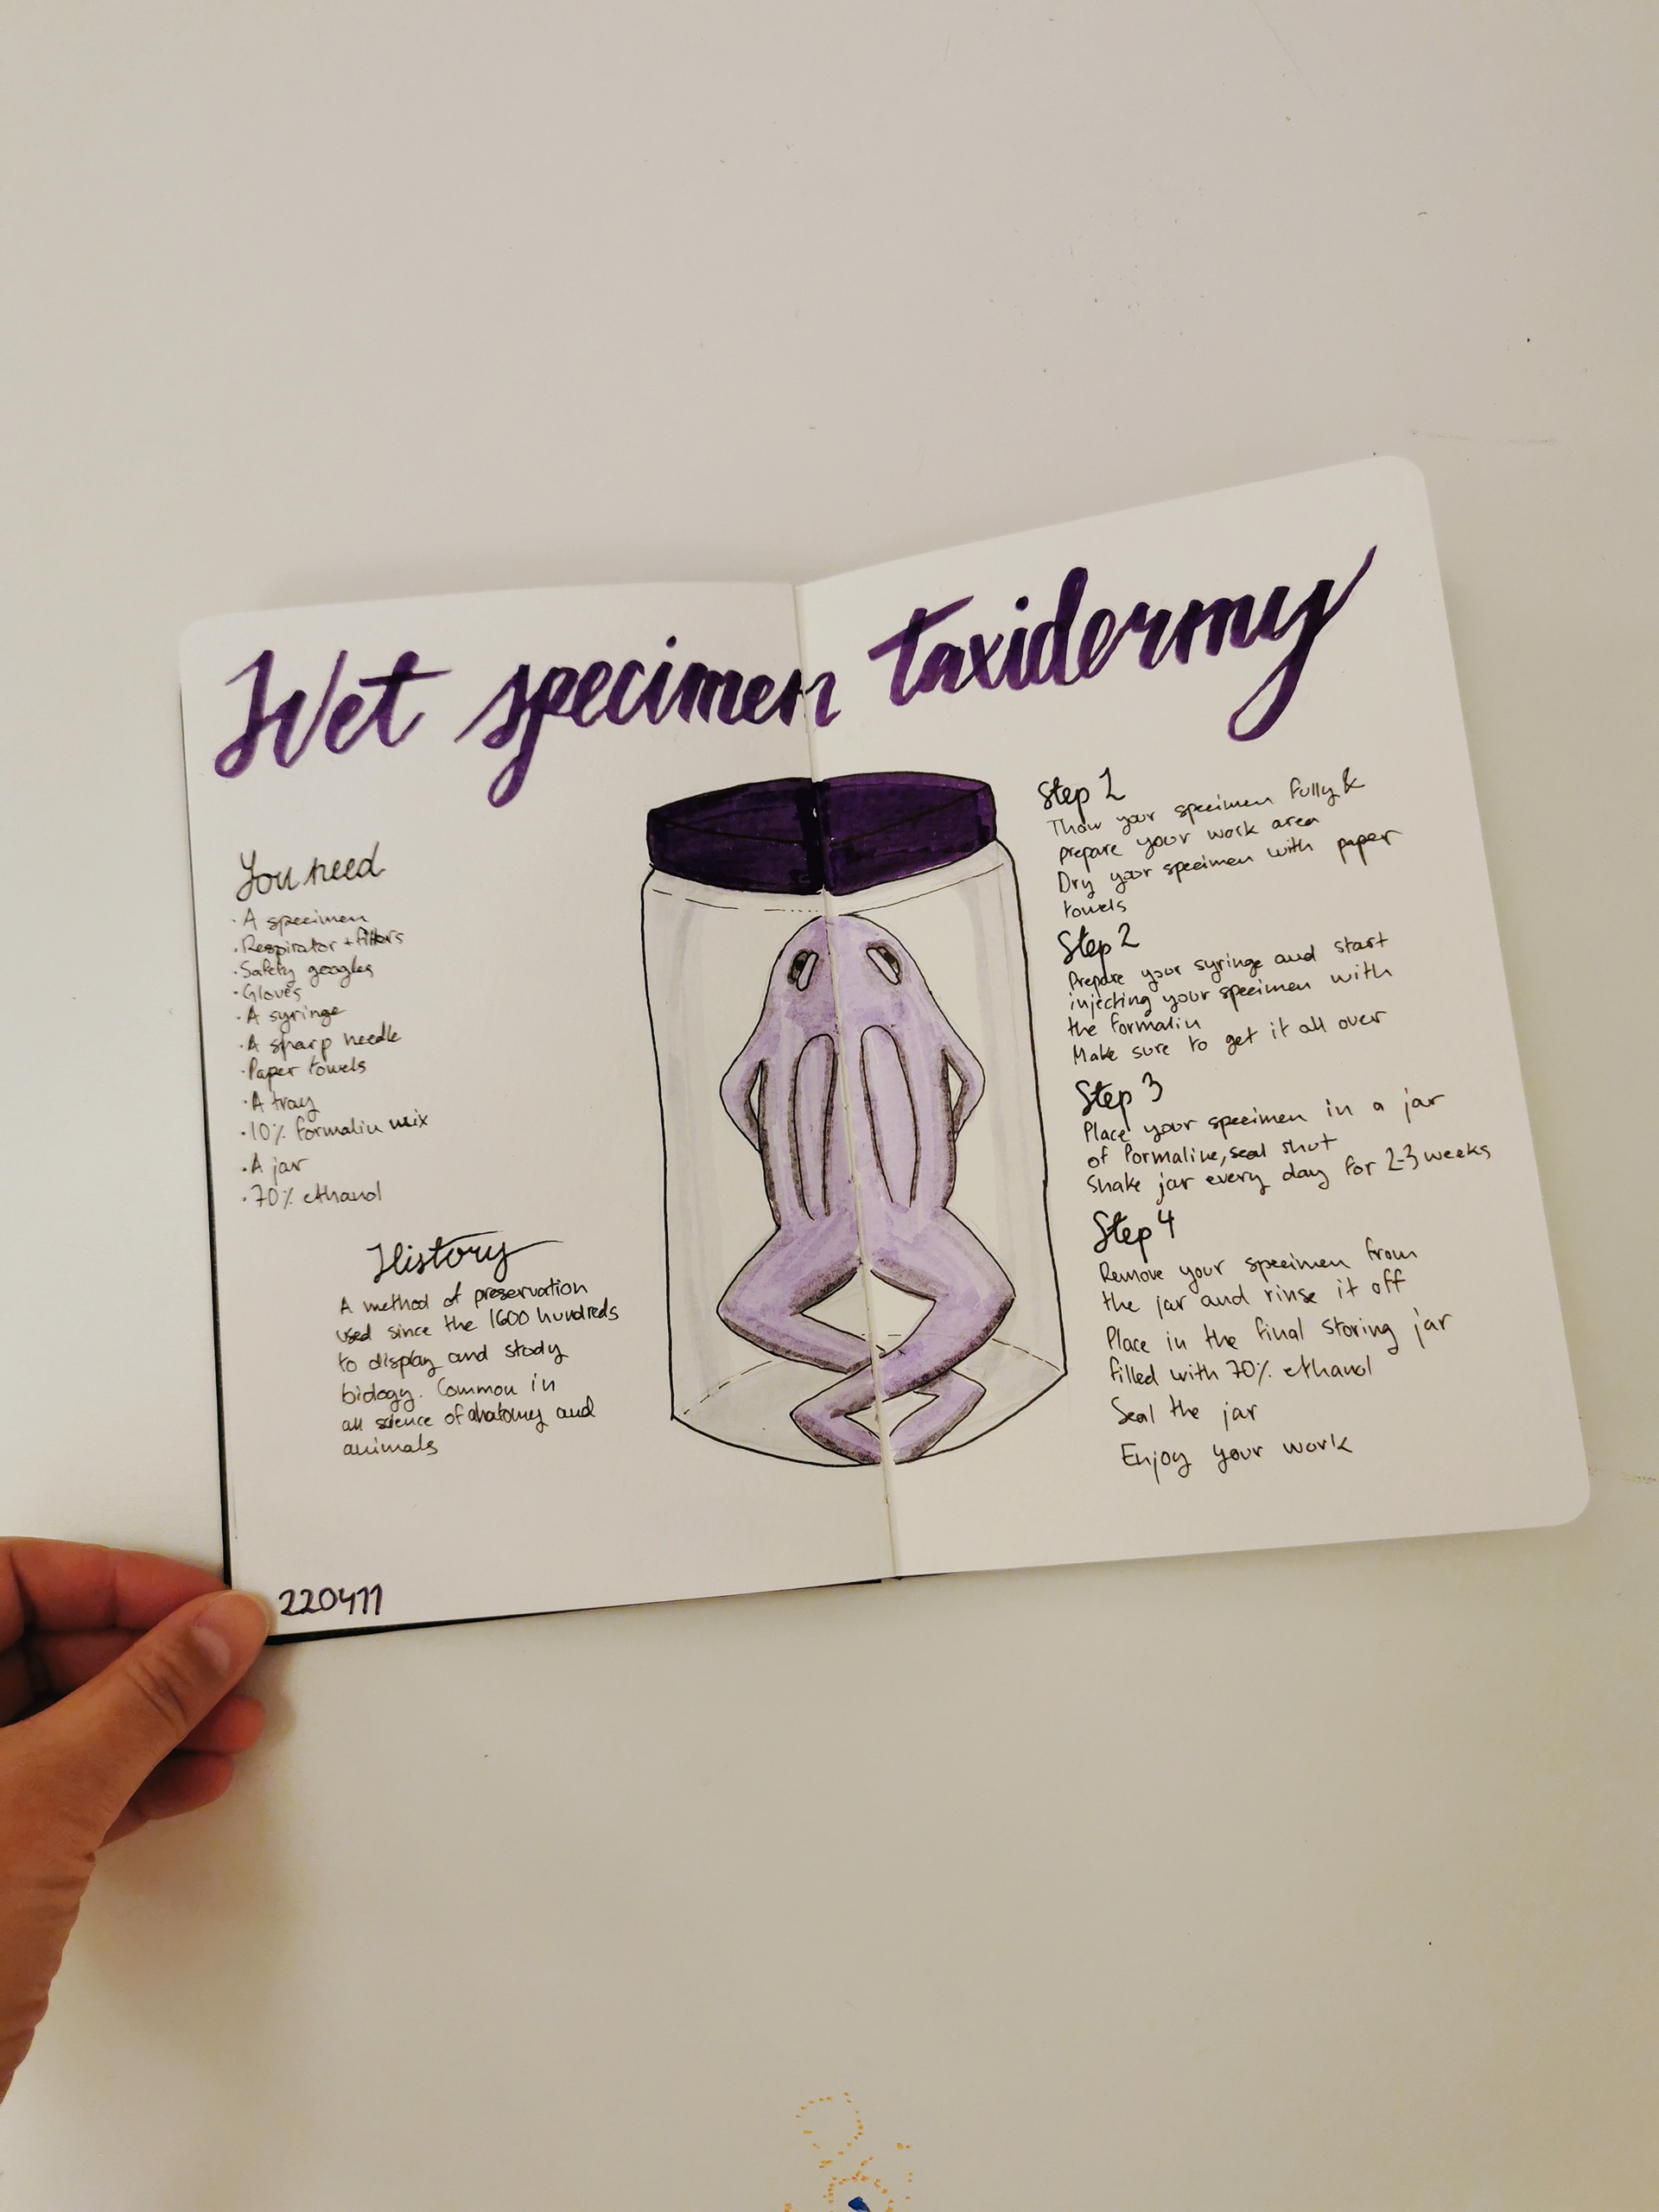 Wet specimen taxidermy
You need
· A specimen
· Respirator + filters
· Safety googles
· Gloves
· A syringe
· A sharp needle
· Paper towels
· A tray
· 10% formalin mix
· A jar
· 70% ethanol
History
A method of preservation
used since the 1600 hundreds
to display and study
biology. Common in
all science of anatomy and
animals
220411
Step 1
Thaw your specimen fully &
prepare your work area
Dry your specimen with paper
towels
Step 2
Prepare your syringe and start
injecting your specimen with
the formalin
Make sure to get it all over
Step 3
Place your specimen in a jar
of formaline, seal shut
Shake jar every day for 2-3 weeks
Step 4
Remove your specimen from
the jar and rinse it off
Place in the final storing jar
filled with 70% ethanol
Seal the jar
Enjoy your work